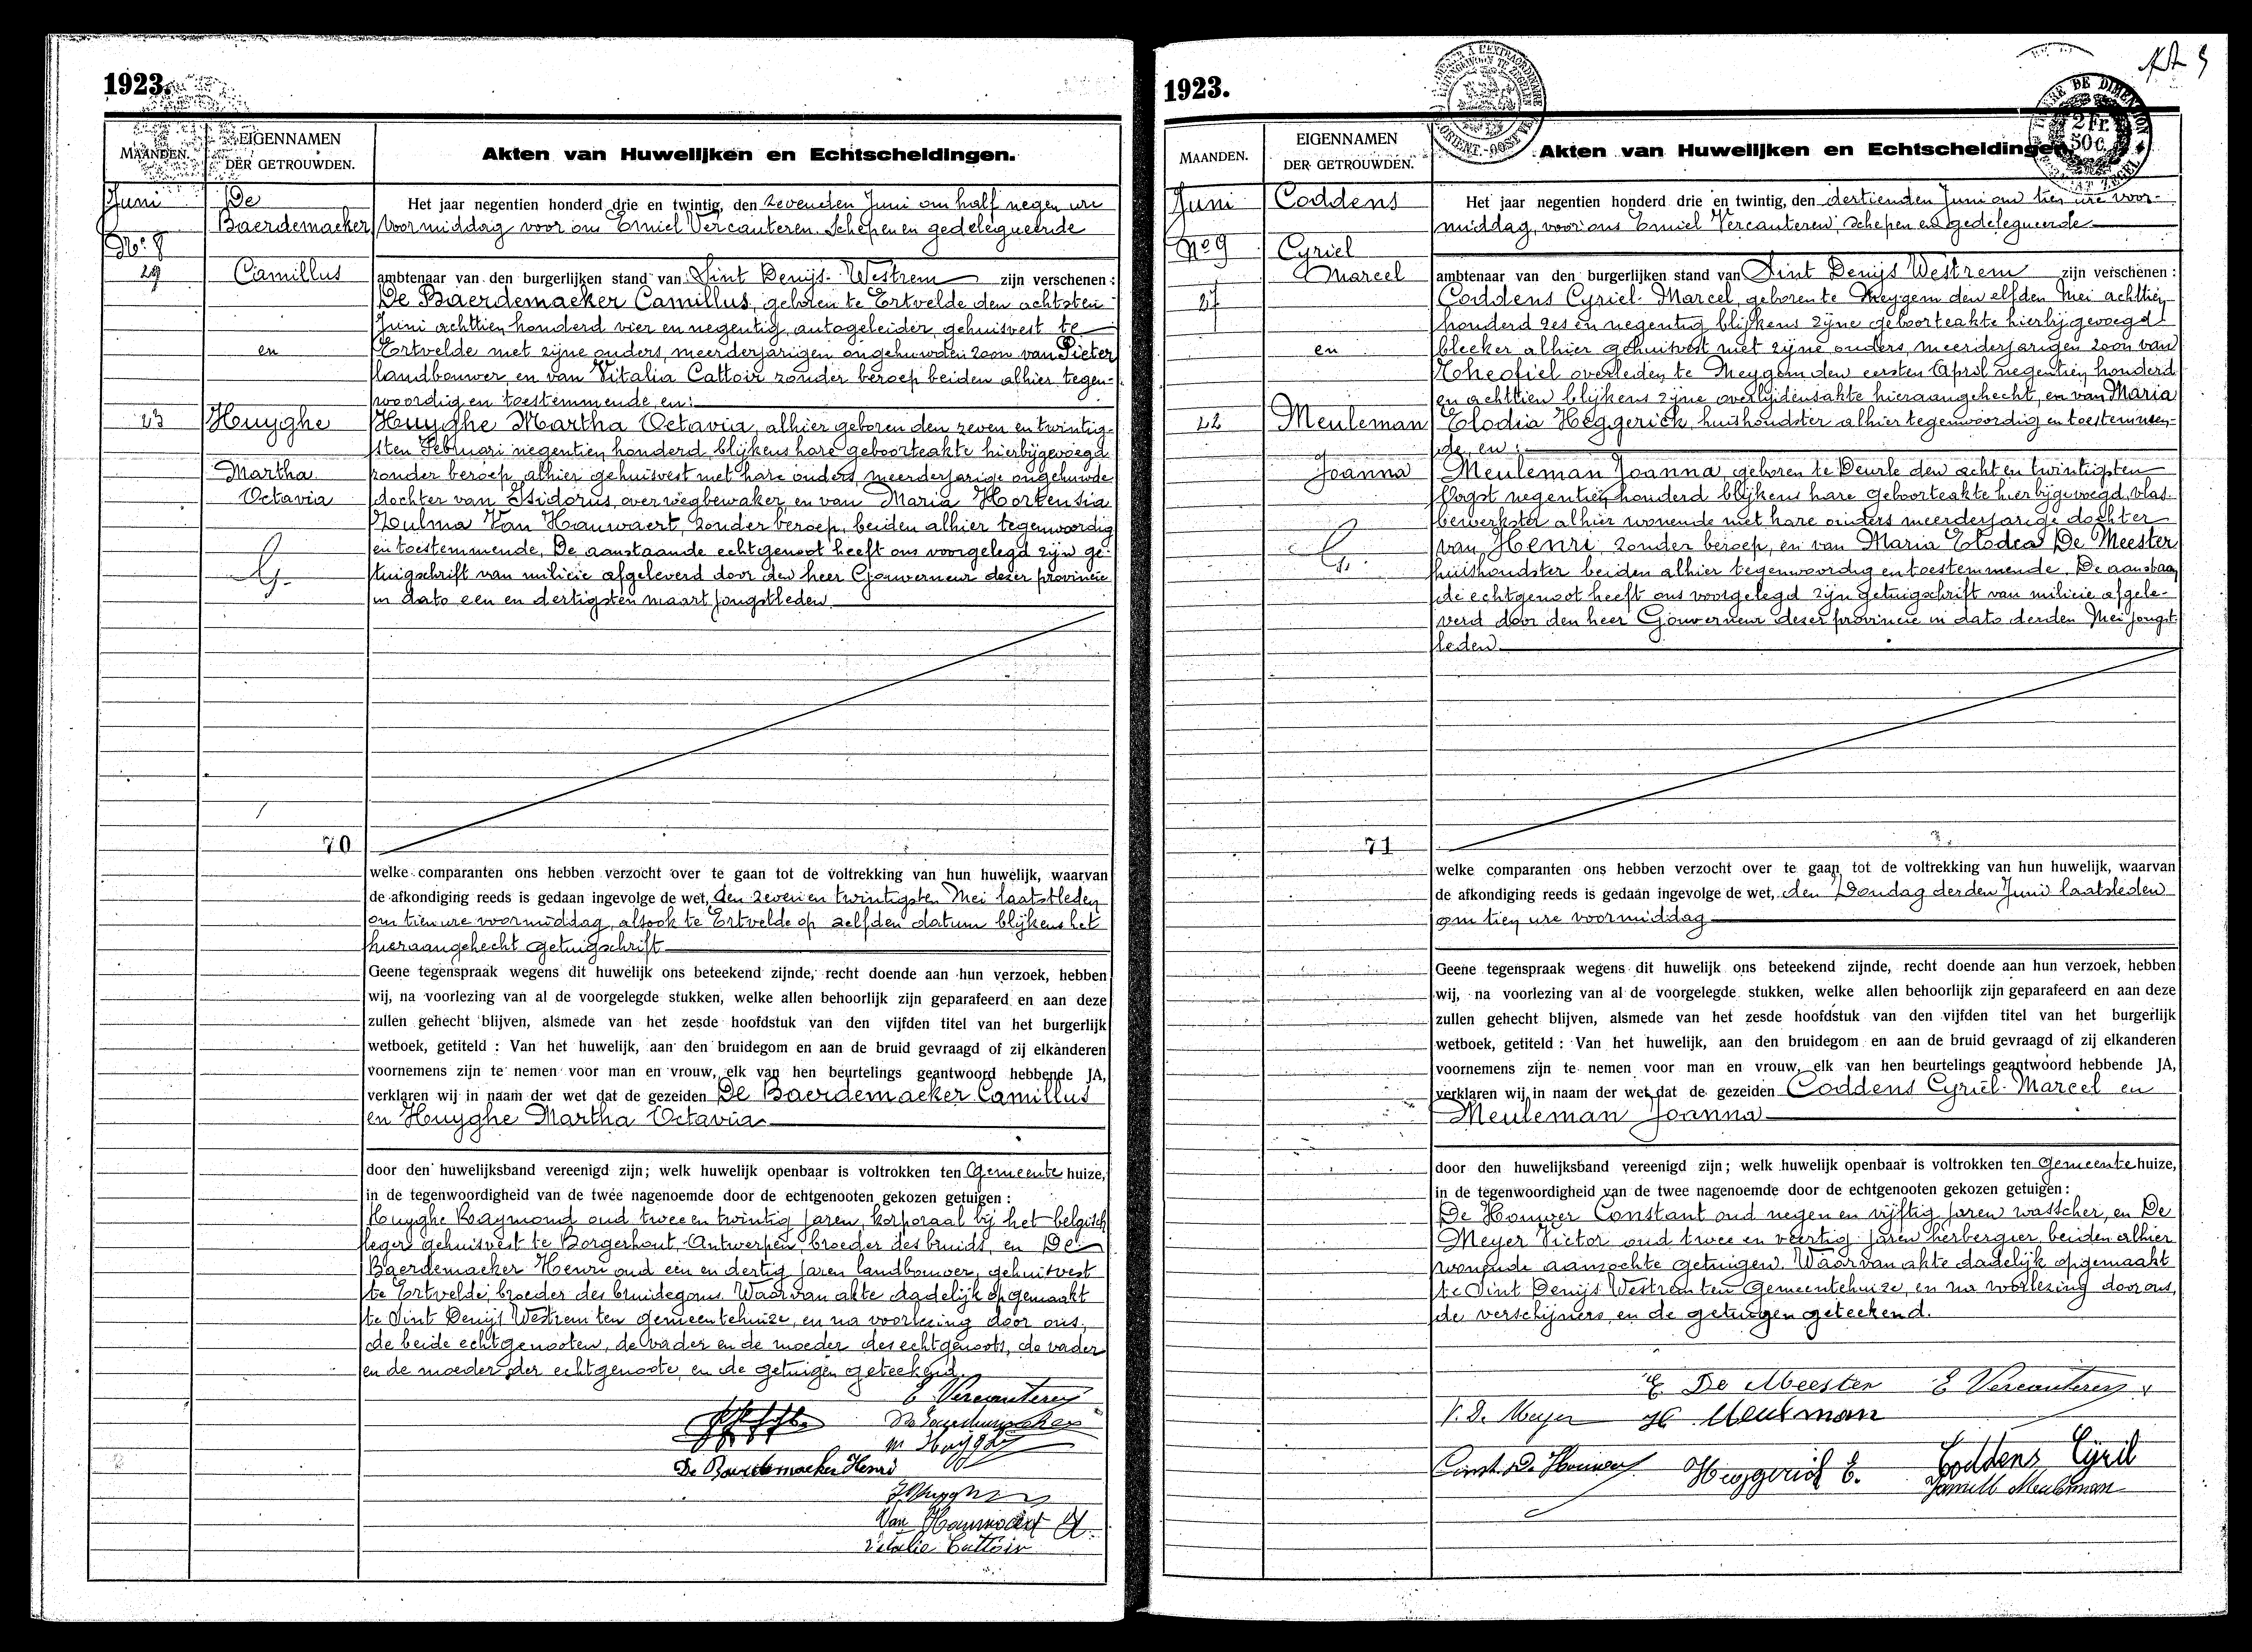 1923.
MAANDEN.
EIGENNAMEN
DER GETROUWDEN.
Akten van Huwelijken en Echtscheidingen.
Juni
No 8
29
23
De
Baerdemaeker
Camillus
en
Huyghe
Martha
Octavia
70
Het jaar negentien honderd drie en twintig, den zevenden Juni om half negen ure
voormiddag voor ons Emiel Vercauteren Schepen en gedelegueerde
ambtenaar van den burgerlijken stand van Sint Denijs-Westrem zijn verschenen :
De Baerdemaeker Camillus, geboren te Ertvelde den achtsten
Juni achttien honderd vier en negentig, autogeleider, gehuisvest te
Ertvelde met zijne ouders, meerderjarigen ongehuwden zoon van Pieter
landbouwer, en van Vitalia Cattoir zonder beroep beiden alhier tegen-
woordig en toestemmende, en:
Huyghe Martha Octavia, alhier geboren den zeven en twintig-
sten Februari negentien honderd blijkens hare geboorteakte hierbijgevoegd
zonder beroep, alhier gehuisvest met hare ouders, meerderjarige ongehuwde
dochter van Isidorus, overwegbewaker, en van Maria Hortensia
Zulma Van Hauwaert, zonder beroep, beiden alhier tegenwoordig
en toestemmende. De aanstaande echtgenoot heeft ons voorgelegd zijn ge-
tuigschrift van milicie afgeleverd door den heer Gouverneur dezer provincie
in dato een en dertigsten maart jongstleden.
welke comparanten ons hebben verzocht over te gaan tot de voltrekking van hun huwelijk, waarvan
de afkondiging reeds is gedaan ingevolge de wet, den zeven en twintigsten Mei laatstleden
om tien ure voormiddag, alsook te Ertvelde op zelfden datum blijkens het
hieraangehecht getuigschrift
Geene tegenspraak wegens dit huwelijk ons beteekend zijnde, recht doende aan hun verzoek, hebben
wij, na voorlezing van al de voorgelegde stukken, welke allen behoorlijk zijn geparafeerd en aan deze
zullen gehecht blijven, alsmede van het zesde hoofdstuk van den vijfden titel van het burgerlijk
wetboek, getiteld : Van het huwelijk, aan den bruidegom en aan de bruid gevraagd of zij elkanderen
voornemens zijn te nemen voor man en vrouw, elk van hen beurtelings geantwoord hebbende JA,
verklaren wij in naam der wet dat de gezeiden De Baerdemaeker Camillus
en Huyghe Martha Octavia
door den huwelijksband vereenigd zijn; welk huwelijk openbaar is voltrokken ten Gemeente huize,
in de tegenwoordigheid van de twee nagenoemde door de echtgenooten gekozen getuigen :
Huyghe Raymond oud twee en twintig jaren, korporaal bij het belgisch
leger gehuisvest te Borgerhout-Antwerpen, broeder des bruids, en De
Baerdemaeker Henri oud een en dertig jaren landbouwer, gehuisvest
te Ertvelde, broeder des bruidegoms. Waarvan akte dadelijk opgemaakt
te Sint Denijs Westrem ten gemeentehuize, en na voorlezing door ons,
de beide echtgenooten, de vader en de moeder des echtgenoots, de vader
en de moeder der echtgenoote, en de getuigen geteekend.
E Vercauteren
De Baerdemaeker
M Huyghe
De Baerdemaeker Henri
Van Hauwaert
Vitalie Cattoir
1923.
MAANDEN.
EIGENNAMEN
DER GETROUWDEN.
Akten van Huwelijken en Echtscheidingen.
2 Fr.
50 c.
Juni
No 9
27
22
Coddens
Cyriel
Marcel
en
Meuleman
Joanna
71
Het jaar negentien honderd drie en twintig, den dertienden Juni om tien ure voor-
middag, voor ons Emiel Vercauteren, schepen en gedelegueerde
ambtenaar van den burgerlijken stand van Sint Denijs Westrem zijn verschenen :
Coddens Cyriel-Marcel, geboren te Meygem den elfden Mei achttien
honderd zes en negentig blijkens zijne geboorteakte hierbijgevoegd
bleeker alhier gehuisvest met zijne ouders, meerderjarigen zoon van
Theofiel overleden te Meygem den eersten April negentien honderd
en achttien blijkens zijne overlijdensakte hieraangehecht, en van Maria
Elodia Heggerick, huishoudster alhier tegenwoordig en toestemmen-
de, en :
Meuleman Joanna, geboren te Deurle den acht en twintigsten
Oogst negentien honderd blijkens hare geboorteakte hierbijgevoegd, vlas-
bewerkster alhier wonende met hare ouders meerderjarige dochter
van Henri, zonder beroep, en van Maria Elodia De Meester
huishoudster beiden alhier tegenwoordig en toestemmende. De aanstaan
de echtgenoot heeft ons voorgelegd zijn getuigschrift van milicie afgele-
verd door den heer Gouverneur dezer provincie in dato derden Mei jongst-
leden
welke comparanten ons hebben verzocht over te gaan tot de voltrekking van hun huwelijk, waarvan
de afkondiging reeds is gedaan ingevolge de wet, den Zondag derden Juni laatsleden
om tien ure voormiddag
Geene tegenspraak wegens dit huwelijk ons beteekend zijnde, recht doende aan hun verzoek, hebben
wij, na voorlezing van al de voorgelegde stukken, welke allen behoorlijk zijn geparafeerd en aan deze
zullen gehecht blijven, alsmede van het zesde hoofdstuk van den vijfden titel van het burgerlijk
wetboek, getiteld : Van het huwelijk, aan den bruidegom en aan de bruid gevraagd of zij elkanderen
voornemens zijn te nemen voor man en vrouw, elk van hen beurtelings geantwoord hebbende JA,
verklaren wij in naam der wet dat de gezeiden Coddens Cyriel-Marcel en
Meuleman Joanna
door den huwelijksband vereenigd zijn; welk huwelijk openbaar is voltrokken ten Gemeente huize,
in de tegenwoordigheid van de twee nagenoemde door de echtgenooten gekozen getuigen :
De Houwer Constant oud negen en vijftig jaren wasscher, en De
Meyer Victor oud twee en veertig jaren herbergier, beiden alhier
wonende aanzochte getuigen. Waarvan akte dadelijk opgemaakt
te Sint Denijs Westrem ten Gemeentehuize, en na voorlezing door ons,
de verschijners, en de getuigen geteekend.
E De Meester E Vercauteren
V. De Meyer H Meuleman
Const. De Houwer Heggerick E. Coddens Cyril
Meuleman